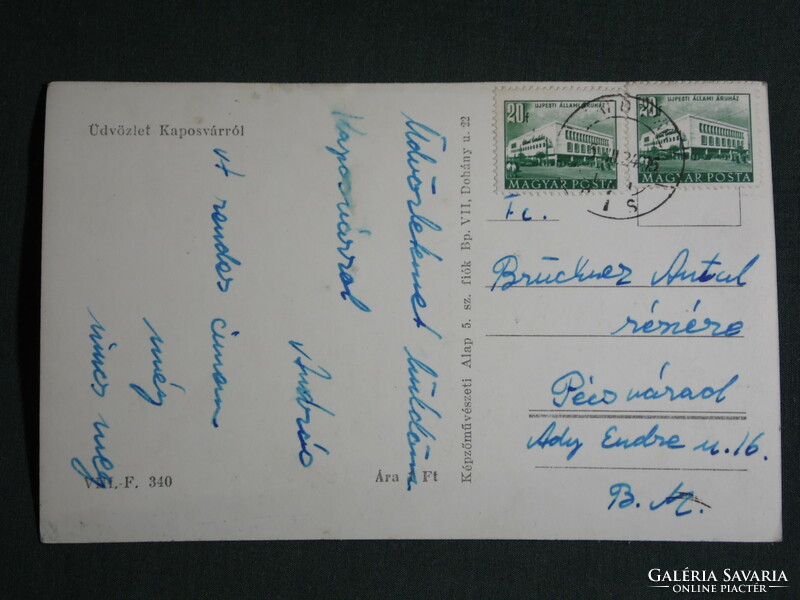 Üdvözlet Kaposvárról
Üdvözletemet küldöm
Kaposvárról
András
A rendes címem
még
nincs meg
VIII.-F. 340
Ára Ft
Képzőművészeti Alap 5. sz. fiók Bp. VII, Dohány u. 22
20f
UJPESTI ÁLLAMI ÁRUHÁZ
MAGYAR POSTA
20f
UJPESTI ÁLLAMI ÁRUHÁZ
MAGYAR POSTA
Fc.
Brückner Antal
részére
Pécsvárad
Ady Endre u. 16.
B. M.
GALÉRIA SAVARIA
ONLINE PIACTÉR